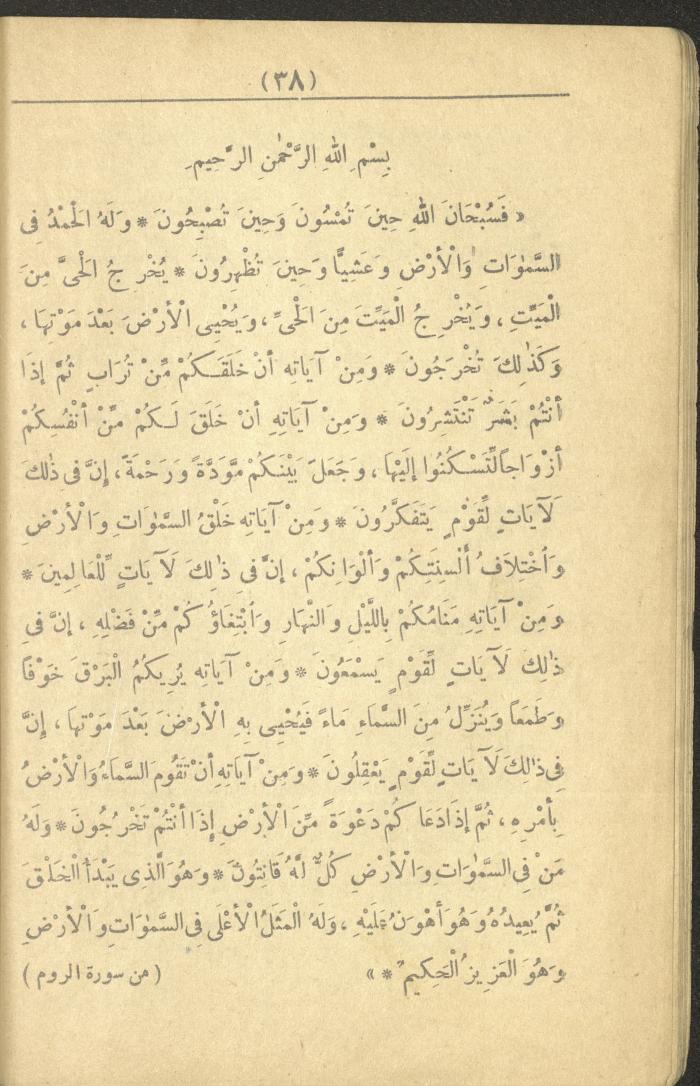 (٣٨)
بِسْمِ اللهِ الرَّحْمٰنِ الرَّحِيمِ
« فَسُبْحَانَ اللهِ حِينَ تُمْسُونَ وَحِينَ تُصْبِحُونَ * وَلَهُ الْحَمْدُ فِى
السَّمٰوَاتِ وَالْأَرْضِ وَعَشِيًّا وَحِينَ تُظْهِرُونَ * يُخْرِجُ الْحَىَّ مِنَ
الْمَيِّتِ ، وَيُخْرِجُ الْمَيِّتَ مِنَ الْحَىِّ ، وَيُحْيِى الْأَرْضَ بَعْدَ مَوْتِهَا ،
وَكَذٰلِكَ تُخْرَجُونَ * وَمِنْ آيَاتِهِ أَنْ خَلَقَكُمْ مِّنْ تُرَابٍ ثُمَّ إِذَا
أَنْتُمْ بَشَرٌ تَنْتَشِرُونَ * وَمِنْ آيَاتِهِ أَنْ خَلَقَ لَكُمْ مِّنْ أَنْفُسِكُمْ
أَزْوَاجًا لِّتَسْكُنُوا إِلَيْهَا ، وَجَعَلَ بَيْنَكُمْ مَّوَدَّةً وَرَحْمَةً ، إِنَّ فِى ذٰلِكَ
لَآيَاتٍ لِّقَوْمٍ يَتَفَكَّرُونَ * وَمِنْ آيَاتِهِ خَلْقُ السَّمٰوَاتِ وَالْأَرْضِ
وَاُخْتِلَافُ أَلْسِنَتِكُمْ وَأَلْوَانِكُمْ ، إِنَّ فِى ذٰلِكَ لَآيَاتٍ لِّلْعَالِمِينَ *
وَمِنْ آيَاتِهِ مَنَامُكُمْ بِاللَّيْلِ وَالنَّهَارِ وَابْتِغَاؤُكُمْ مِّنْ فَضْلِهِ ، إِنَّ فِى
ذٰلِكَ لَآيَاتٍ لِّقَوْمٍ يَسْمَعُونَ * وَمِنْ آيَاتِهِ يُرِيكُمُ الْبَرْقَ خَوْفًا
وَطَمَعًا وَيُنَزِّلُ مِنَ السَّمَاءِ مَاءً فَيُحْيِى بِهِ الْأَرْضَ بَعْدَ مَوْتِهَا ، إِنَّ
فِى ذٰلِكَ لَآيَاتٍ لِّقَوْمٍ يَعْقِلُونَ * وَمِنْ آيَاتِهِ أَنْ تَقُومَ السَّمَاءُ وَالْأَرْضُ
بِأَمْرِهِ ، ثُمَّ إِذَا دَعَاكُمْ دَعْوَةً مِّنَ الْأَرْضِ إِذَا أَنْتُمْ تَخْرُجُونَ * وَلَهُ
مَنْ فِى السَّمٰوَاتِ وَالْأَرْضِ كُلٌّ لَّهُ قَانِتُونَ * وَهُوَ الَّذِى يَبْدَأُ الْخَلْقَ
ثُمَّ يُعِيدُهُ وَهُوَ أَهْوَنُ عَلَيْهِ ، وَلَهُ الْمَثَلُ الْأَعْلَى فِى السَّمٰوَاتِ وَالْأَرْضِ
وَهُوَ الْعَزِيزُ الْحَكِيمُ * » (من سورة الروم)